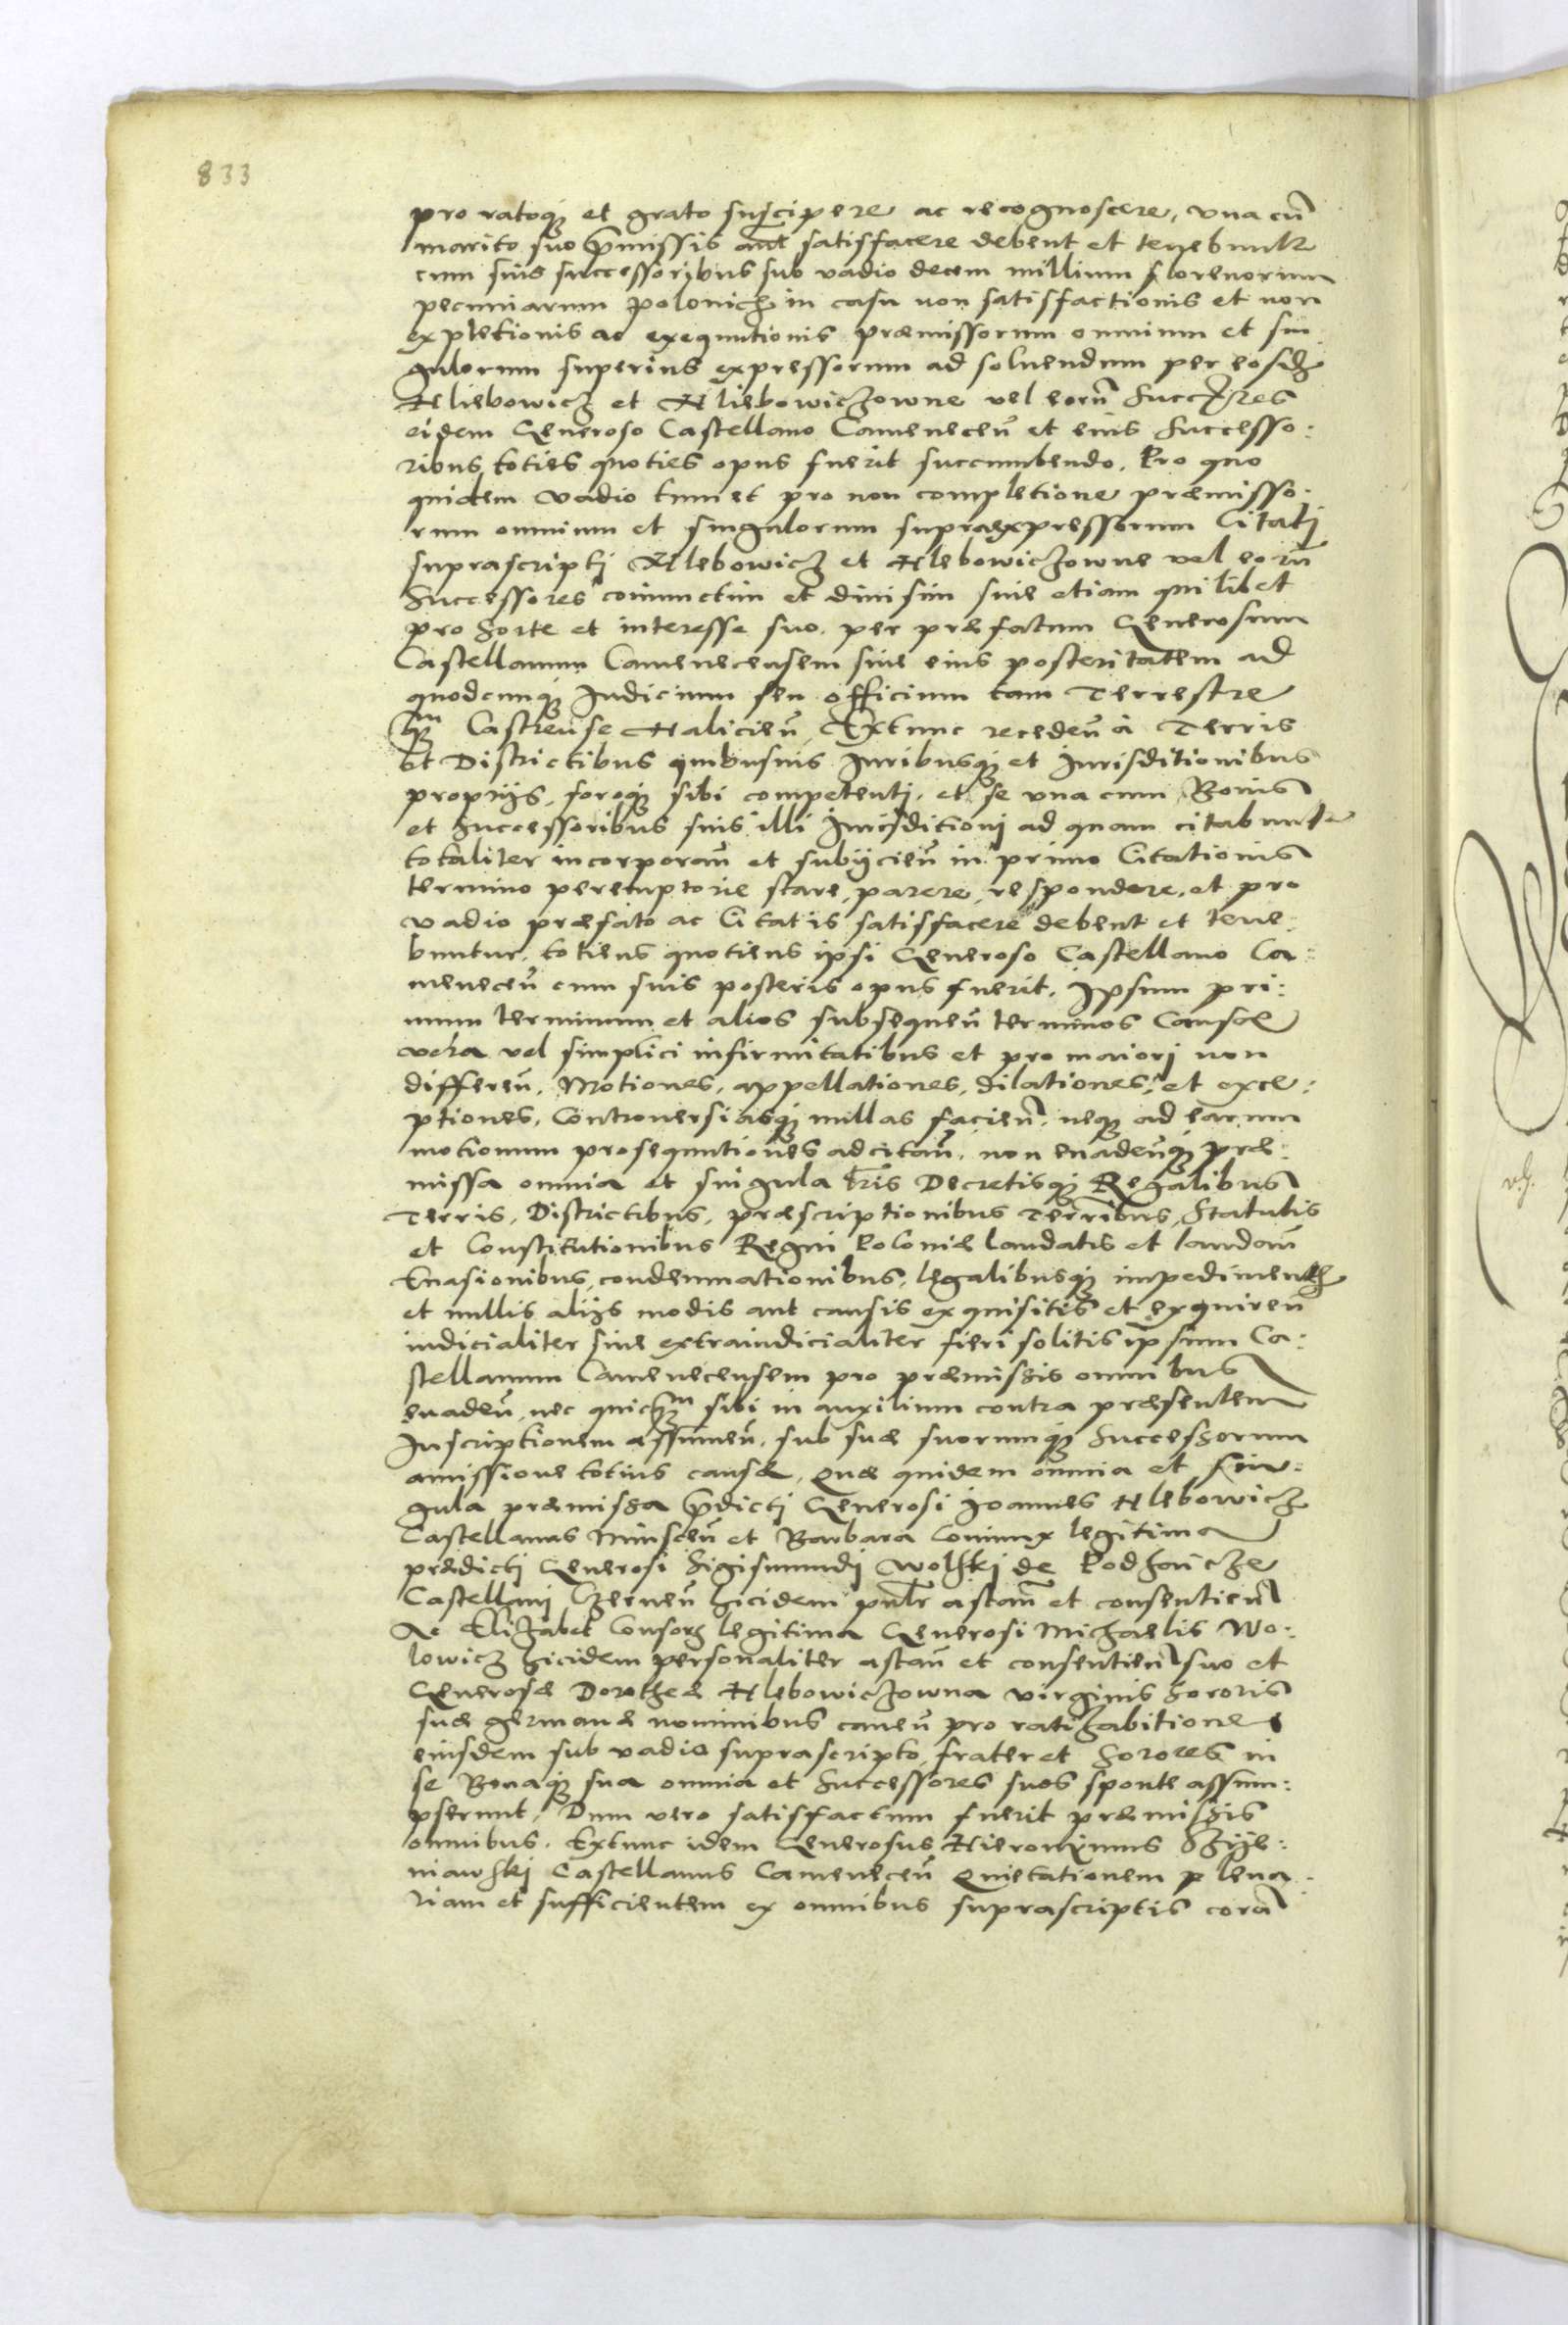 833
pro ratoq₃ et grato suscipere ac recognoscere, vna cũ
marito suo p̃missis aut satisfacere debent et tenebuntr
cum suis successoribus sub vadio decem millium florenorum
pecuniarum polonicꝫ in casu non satisfactionis et non
expletionis ac exequutionis præmissorum omnium et sin
gulorum superius expressorum ad soluendum per eosdꝫ
Hliebowicz et Hliebowiczowne vel eorũ Succ̃res
eidem Generoso Castellano Camenecen̄ et eius Successo:
ribus toties quoties opus fuerit succumbendo. Pro quo
quidem vadio tum et pro non completione præmisso:
rum omnium et singulorum supraexpressorum Citati
suprascripti Hlebowicz et Hlebowiczowne vel eorũ
Successores coniunctim et diuisim siue etiam quilibet
pro sorte et interesse suo. per præfatum Generosum
Castellanum Camenecensem siue eius posteritatem ad
quodcunq₃ Iudicium seu officium tam Terrestre
q̃m Castrense Halicien̄, Extunc receden̄ à Terris
et Districtibus quibusuis Iuribusq₃ et Iurisditionibus
proprijs, foroq₃ sibi competenti. et se vna cum Bonis
et Successoribus suis illi Iurisditioni ad quam citabuntr
totaliter incorporan̄ et subijcien̄ in primo Citationis
termino peremptorie stare, parere, respondere, et pro
vadio præfato ac Citatis satisfacere debent et tene:
buntur. totiens quotiens ipsi Generoso Castellano Ca:
menecen̄ cum suis posteris opus fuerit. Ipsum pri:
mum terminum et alios subsequen̄ terminos Causæ
vera vel simplici infirmitatibus et pro maiori non
differen̄. Motiones, appellationes, dilationes, et exce:
ptiones, Controuersiasq₃ nullas facien̄. neq₃ ad earum
motionum prosequutiones adcitan̄. non euaden̄q₃ præ:
missa omnia et singula l̃ris Decretisq₃ Regalibus
Terris, Districtibus, præscriptionibus Terr̃ribus, Statutis
et Constitutionibus Regni Poloniæ laudatis et laudan̄
Euasionibus, condemnationibus, legalibusq₃ impedimentꝫ
et nullis alijs modis aut causis exquisitis et exquiren̄
iudicialiter siue extraiudicialiter fieri solitis ipsum Ca:
stellanum Camenecensem pro præmissis omnibus
euaden̄, nec quicq̃m sibi in auxilium contra præsentem
Inscriptionem assumen̄. sub suæ suorumq₃ Successorum
amissione totius causæ, Quæ quidem omnia et sin:
gula præmissa p̃dicti Generosi Ioannes Hlebowicz
Castellanus Minscen̄ et Barbara Coniunx legitima
prædicti Generosi Sigismundi Wolski de Podhaicze
Castellani Czernen̄ hicidem pñlr astan̄ et consentien̄
Ac Elizabet Consorꝫ legitima Generosi Michaelis Wo:
lowicz hicidem personaliter astan̄ et consentien̄ suo et
Generosæ Dorotheæ Hlebowiczowna virginis Sororis
suæ germanæ nominibus cauen̄ pro ratihabitione
eiusdem sub vadio suprascripto, frater et Sorores in
se Bonaq₃ sua omnia et Successores suos sponte assum:
pserunt. Dum vero satisfactum fuerit præmissis
omnibus. Extunc idem Generosus Hieronimus Szije:
niawski Castellanus Camenecen̄ Quietationem plena
riam et sufficientem ex omnibus suprascriptis corã